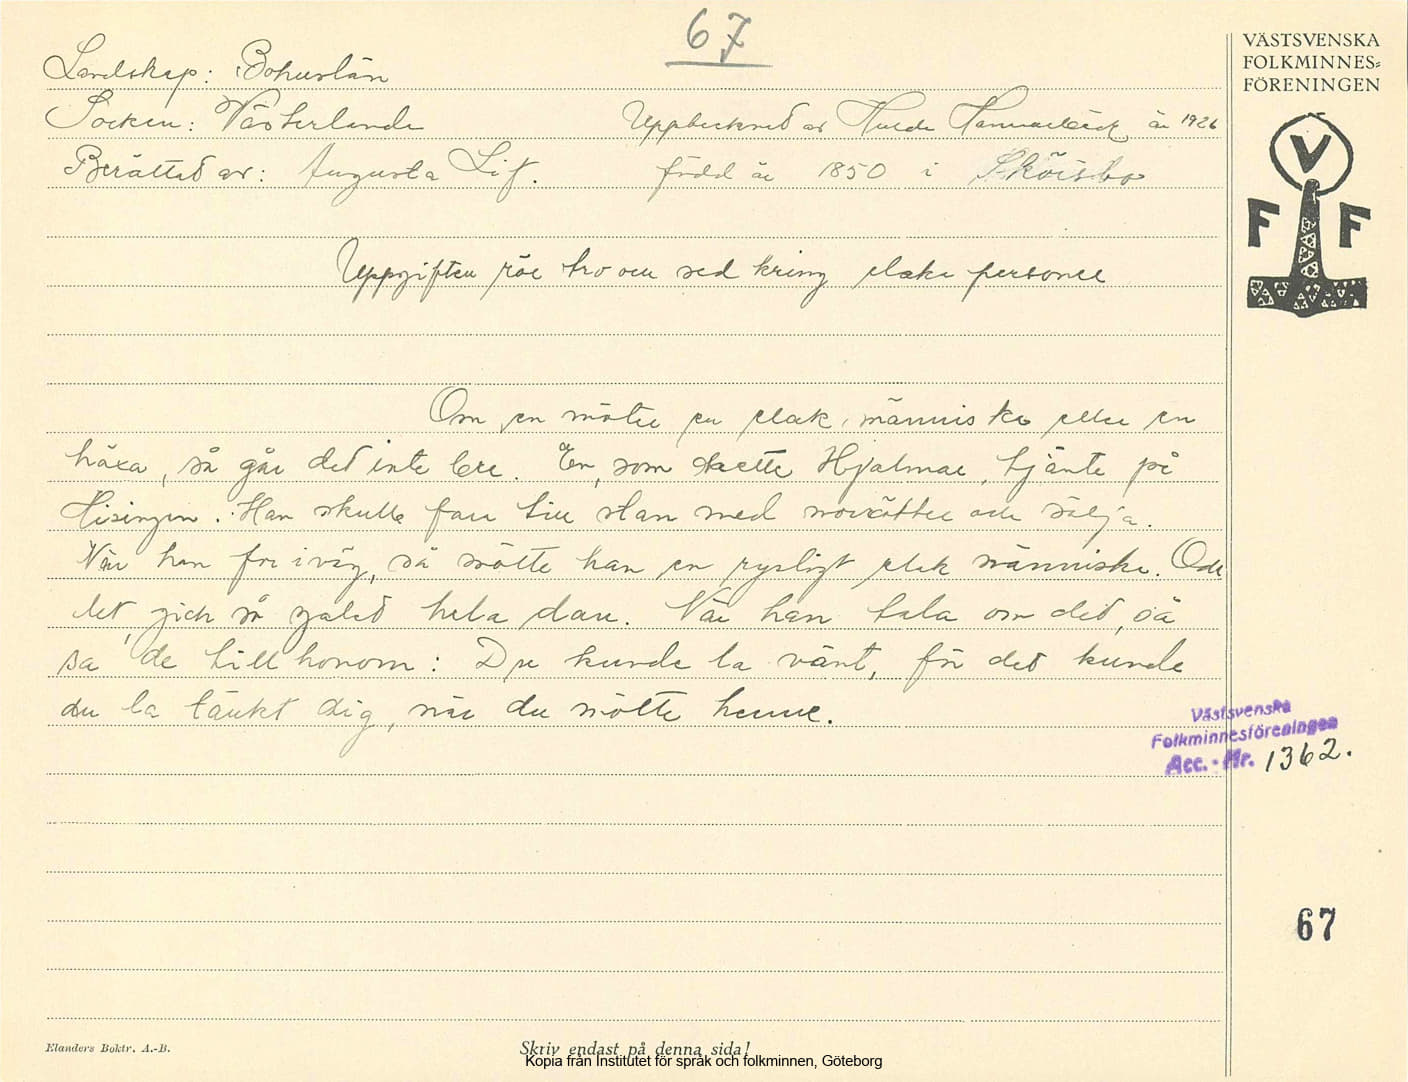 67
VÄSTSVENSKA
FOLKMINNES=
FÖRENINGEN
Landskap: Bohuslän
Socken: Västerlanda Upptecknad av Hulda Hammarbäck år 1926
Berättad av: Augusta Lif. född år 1850 i
V
F F
Uppgiften rör tro och sed kring elaka personer
Om en möter en elak människa eller en
häxa, så går det inte bra. En, som hette Hjalmar, tjänte på
Hisingen. Han skulle fara till stan med morötter och sälja.
När han for i väg, så mötte han en rysligt elak människa. Och
det gick så galet hela dan. När han tala om det, så
sa de till honom: Du kunde la vänt, för det kunde
du la tänkt dig, när du mötte henne.
Västsvenska
Folkminnesföreningen
Acc.-Nr. 1362.
67
Elanders Boktr. A.-B.
Skriv endast på denna sida!
Kopia från Institutet för språk och folkminnen, Göteborg